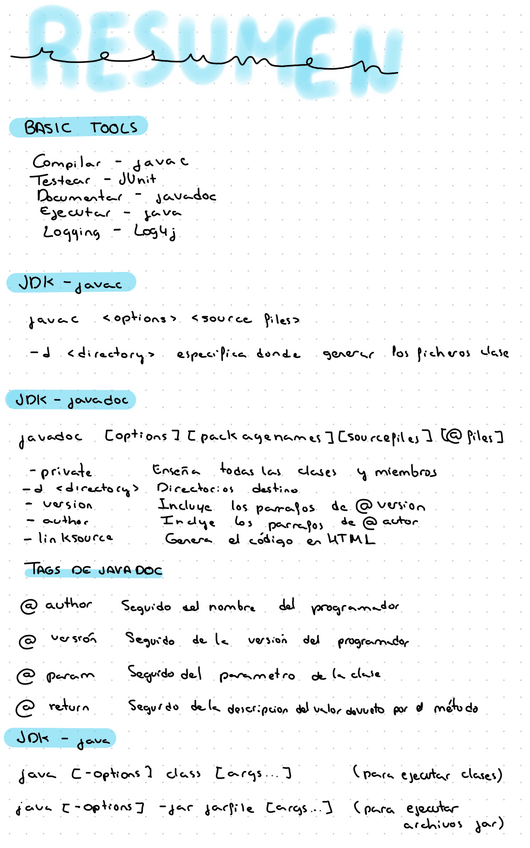 RESUMEN
resumen
BASIC TOOLS
Compilar - javac
Testear - JUnit
Documentar - javadoc
Ejecutar - java
Logging - Log4j
JDK - javac
javac <options> <source files>
-d <directory> especifica donde generar los ficheros clase
JDK - javadoc
javadoc [options] [packagenames] [sourcefiles] [@files]
-private Enseña todas las clases y miembros
-d <directory> Directorios destino
- version Incluye los parrafos de @version
- author Inclye los parrafos de @autor
- linksource Genera el código en HTML
TAGS DE JAVADOC
@ author Seguido del nombre del programador
@ versión Seguido de la versión del programador
@ param Seguido del parametro de la clase
@ return Seguido de la descripcion del valor devueto por el método
JDK - java
java [-options] class [args...] (para ejecutar clases)
java [-options] -jar jarfile [args...] (para ejecutar
archivos jar)